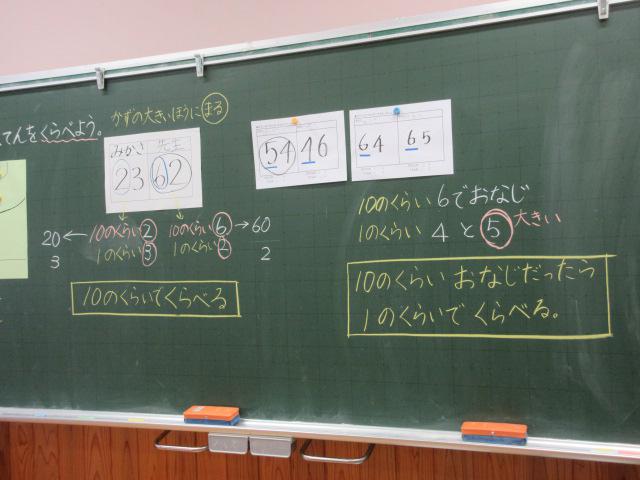 てんをくらべよう。
かずの大きいほうにまる
みかさ 先生
23 62
54 16
64 65
20 ← 10のくらい 2 10のくらい 6 → 60
3 1のくらい 3 1のくらい 2 2
10のくらいでくらべる
10のくらい 6でおなじ
1のくらい 4 と 5 大きい
10のくらい おなじだったら
1のくらいで くらべる。